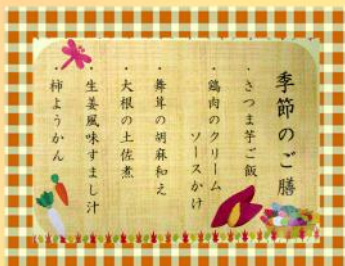 季節のご膳
・さつま芋ご飯
・鶏肉のクリーム
ソースかけ
・舞茸の胡麻和え
・大根の土佐煮
・生姜風味すまし汁
・柿ようかん